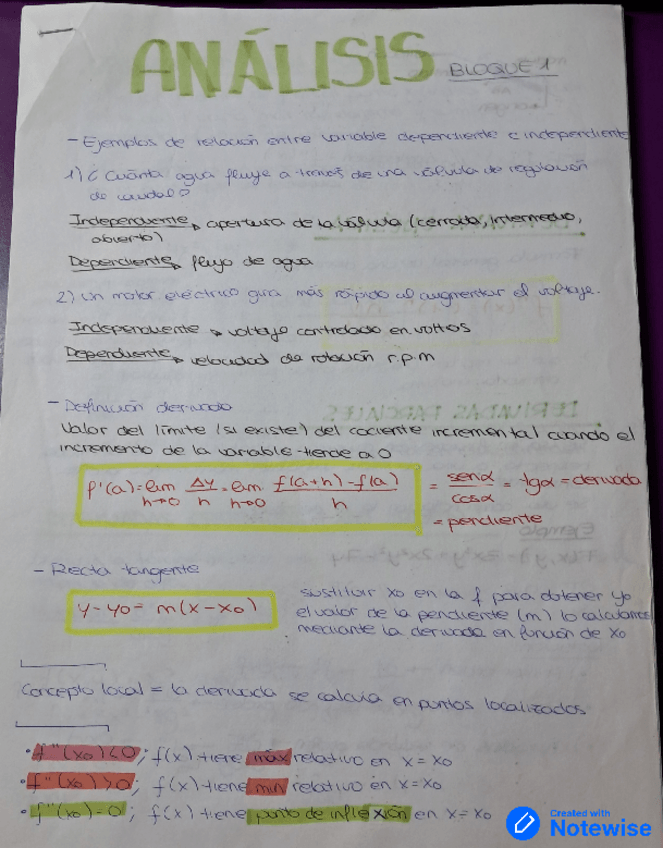 ANÁLISIS BLOQUE 1
- Ejemplos de relación entre variable dependiente e independiente
1) ¿Cuánta agua fluye a través de una válvula de regulación
de caudal?
Independiente → apertura de la válvula (cerrada, intermedio,
abierto)
Dependiente → flujo de agua
2) Un motor eléctrico gira más rápido al augmentar el voltaje.
Independiente → voltaje controlado en voltios
Dependiente → velocidad de rotación r.p.m
- Definición derivada
Valor del límite (si existe) del cociente incremental cuando el
incremento de la variable tiende a 0
f'(a) = lim h→0 Δy/h = lim h→0 (f(a+h) - f(a))/h = senα/cosα = tgα = derivada
= pendiente
- Recta tangente
y - y0 = m(x - x0)
sustituir x0 en la f para obtener y0
el valor de la pendiente (m) lo calculamos
mediante la derivada en función de x0
Concepto local = la derivada se calcula en puntos localizados
• f''(x0) < 0; f(x) tiene máx relativo en x = x0
• f''(x0) > 0; f(x) tiene min relativo en x = x0
• f''(x0) = 0; f(x) tiene punto de inflexión en x = x0
Created with
Notewise